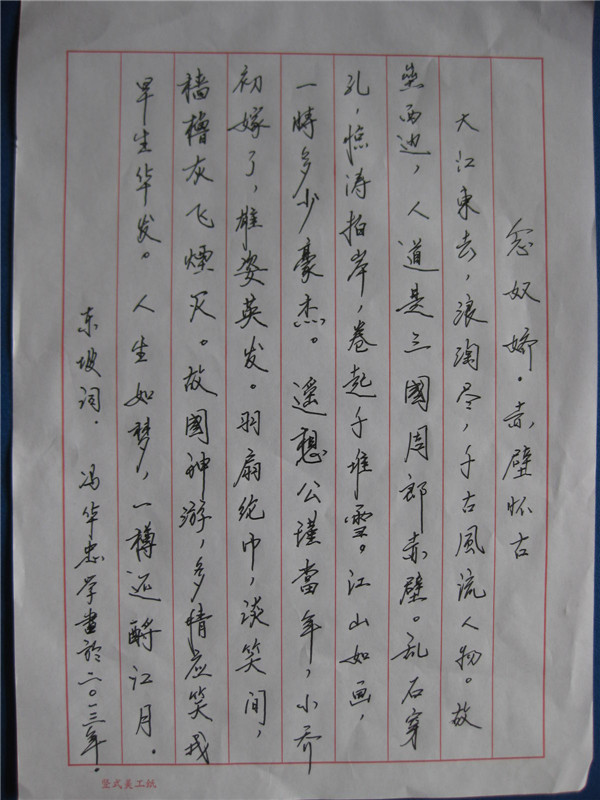 念奴娇·赤壁怀古
大江東去，浪淘尽，千古風流人物。故
垒西边，人道是三國周郎赤壁。乱石穿
孔，惊涛拍岸，卷起千堆雪。江山如画，
一時多少豪杰。遥想公瑾當年，小乔
初嫁了，雄姿英发。羽扇纶巾，谈笑间，
樯櫓灰飞煙灭。故國神游，多情应笑我
早生华发。人生如梦，一樽还酹江月。
东坡词．冯华忠学書於二〇一三年．
竖式美工纸